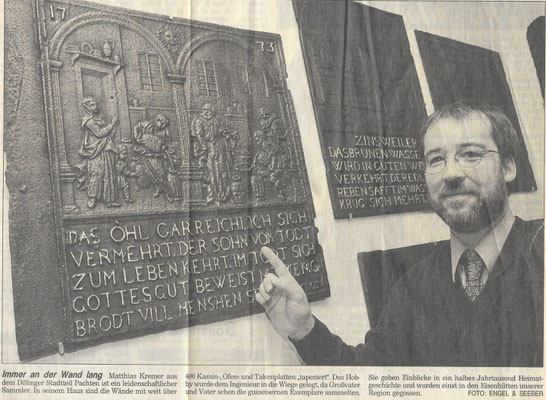 17 73
DAS ÖHL GARREICHLICH SICH
VERMEHRT. DER SOHN VOM TODT
ZUM LEBEN KEHRT. IM TOPF SICH
GOTTES GUT BEWEIST
BRODT VILL MENSHEN
ZINSWEILER
DAS BRUNEN WASSE
WIRD IN GUTEN WE
VERKEHRT. DER EDL
REBEN SAFFT IM WAS
KRUG SICH MEHRT.
Immer an der Wand lang Matthias Kremer aus
dem Dillinger Stadtteil Pachten ist ein leidenschaftlicher
Sammler. In seinem Haus sind die Wände mit weit über
400 Kamin-, Ofen- und Takenplatten „tapeziert". Das Hob-
by wurde dem Ingenieur in die Wiege gelegt, da Großvater
und Vater schon die gusseisernen Exemplare sammelten.
Sie geben Einblicke in ein halbes Jahrtausend Heimat-
geschichte und wurden einst in den Eisenhütten unserer
Region gegossen. FOTO: ENGEL & SEEBER